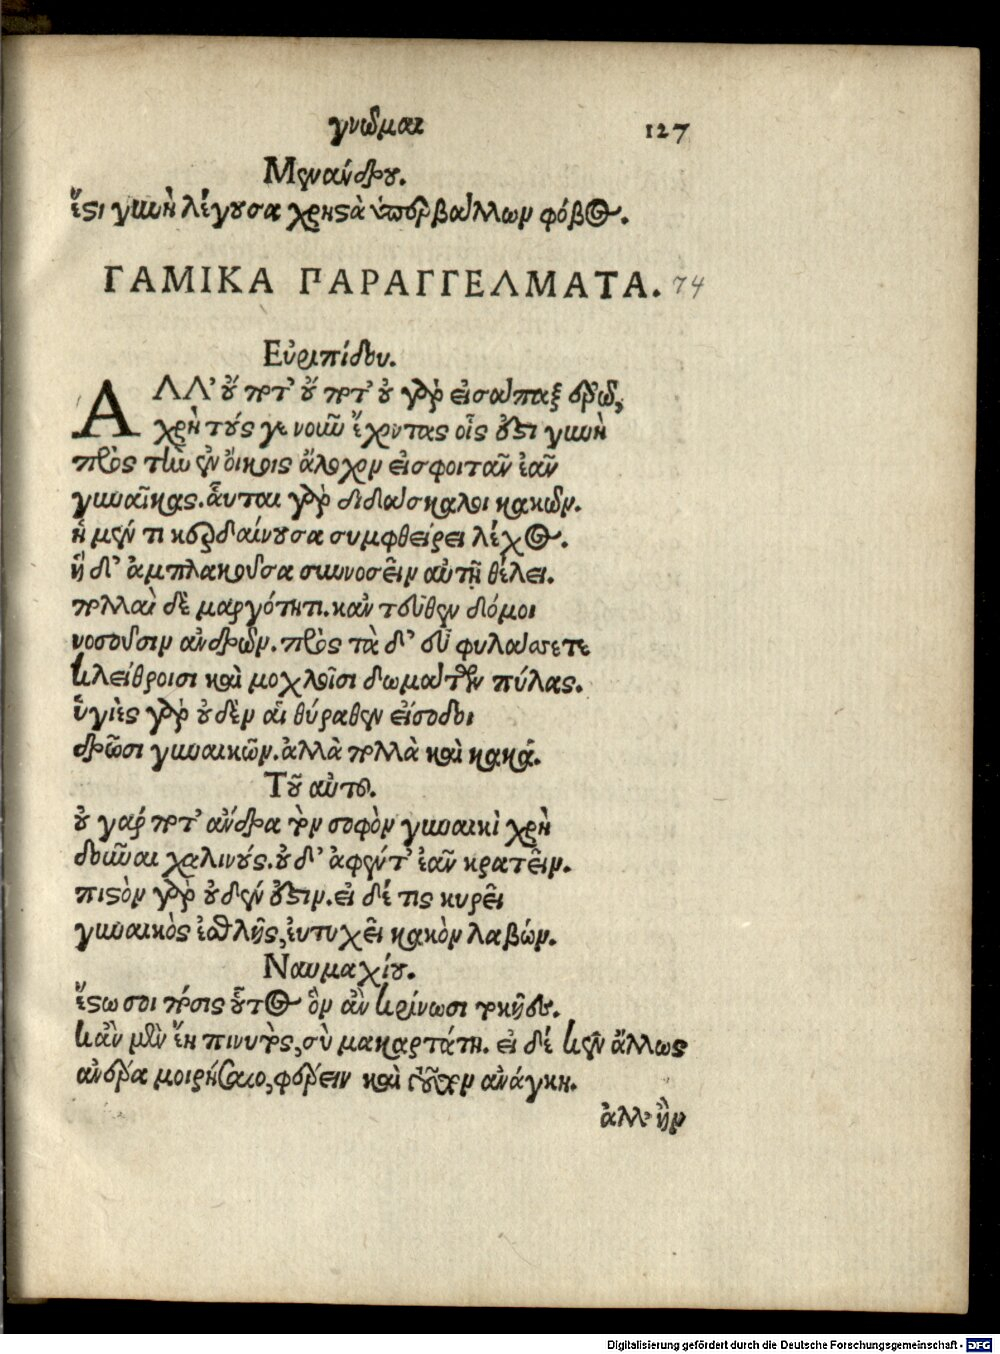 γνῶμαι 127
Μενάνδρου.
ἔςι γυνὴ λέγουσα χρηςὰ ὑπερβάλλων φόβος.
ΓΑΜΙΚΑ ΠΑΡΑΓΓΕΛΜΑΤΑ. 74
Εὐριπίδου.
ΑΛΛ' οὔ ποτ' οὔ ποτ' οὐ γὰρ εἰσάπαξ ἐρῶ,
χρὴ τούς γε νοῦν ἔχοντας οἷς ἐςι γυνὴ
πρὸς τὴν ἐν οἴκοις ἄλοχον εἰσφοιτᾶν ἐᾶν
γυναῖκας. αὗται γὰρ διδάσκαλοι κακῶν.
ἡ μέν τι κερδαίνουσα συμφθείρει λέχος.
ἡ δ' ἀμπλακοῦσα συννοσεῖν αὐτῇ θέλει.
πολλαὶ δὲ μαργότητι. κἀν τοῦθεν δόμοι
νοσοῦσιν ἀνδρῶν. πρὸς τὰ δ' εὖ φυλάσσετε
κλείθροισι καὶ μοχλοῖσι δωμάτων πύλας.
ὑγιὲς γὰρ οὐδὲν αἱ θύραθεν εἴσοδοι
δρῶσι γυναικῶν. ἀλλὰ πολλὰ καὶ κακά.
Τοῦ αὐτοῦ.
οὐ γάρ ποτ' ἄνδρα τὸν σοφὸν γυναικὶ χρὴ
δοῦναι χαλινούς. οὐδ' ἀφέντ' ἐᾶν κρατεῖν.
πιςὸν γὰρ οὐδέν ἐςιν. εἰ δέ τις κυρεῖ
γυναικὸς ἐσθλῆς, εὐτυχεῖ κακὸν λαβών.
Ναυμαχίου.
ἔςω σοι πόσις οὗτος ὃν ἂν κρίνωσι τοκῆες.
κἂν μὲν ἔῃ πινυτὸς, σὺ μακαρτάτη. εἰ δέ κεν ἄλλως
ἀνέρα μοιρήσαιο, φέρειν καὶ τοῦτον ἀνάγκη.
ἀλλ' ἢν
Digitalisierung gefördert durch die Deutsche Forschungsgemeinschaft - DFG